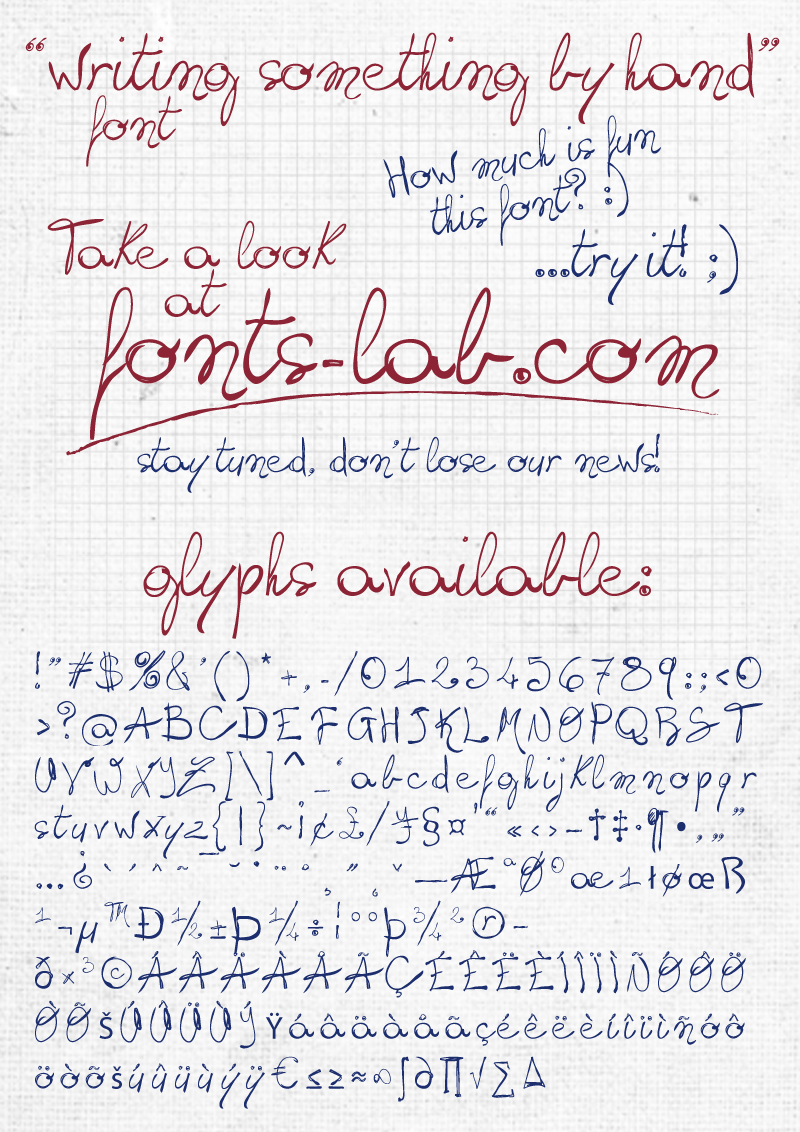 “writing something by hand”
font
How much is fun
this font? :)
...try it! ;)
Take a look
at
fonts-lab.com
stay tuned, don't lose our news!
glyphs available:
!"#$%&'()*+,-/0123456789:;<O
>?@ABCDEFGHIJKLMNOPQRST
UVYWXYZ[\]^_`abcdefghijklmnopqr
stuvwxyz{|}~¡¢£/¥§¤'“«‹›–†‡·¶•‚„”
…¿`´ˆ˜¯˘˙¨˚¸˝˛ˇ—ƪØºæıłøœß
¹¬µ™Ð½±Þ¼÷¦°°þ¾²®-
ð×³©ÁÂÄÀÅÃÇÉÊËÈÍÎÏÌÑÓÔÖ
ÒÕŠÚÛÜÙÝŸáâäàåãçéêëèíîïìñóô
öòõšúûüùýÿ€≤≥≈∞∫∂∏√∑∆